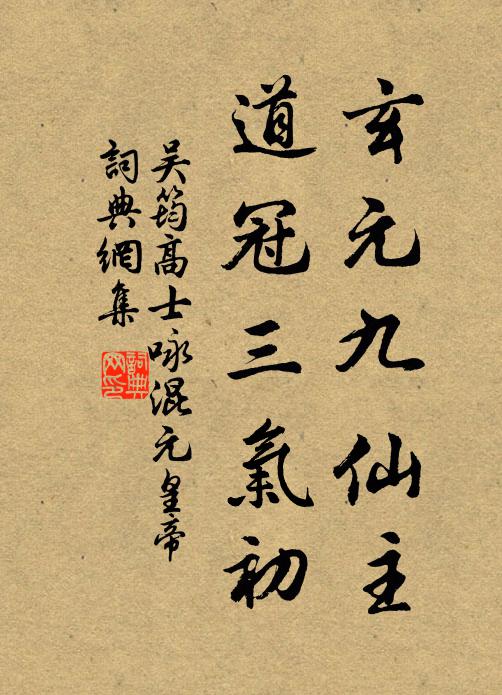 玄元九仙主
道冠三氣初
吳筠高士咏混元皇帝
詞典網集
詞典
网印